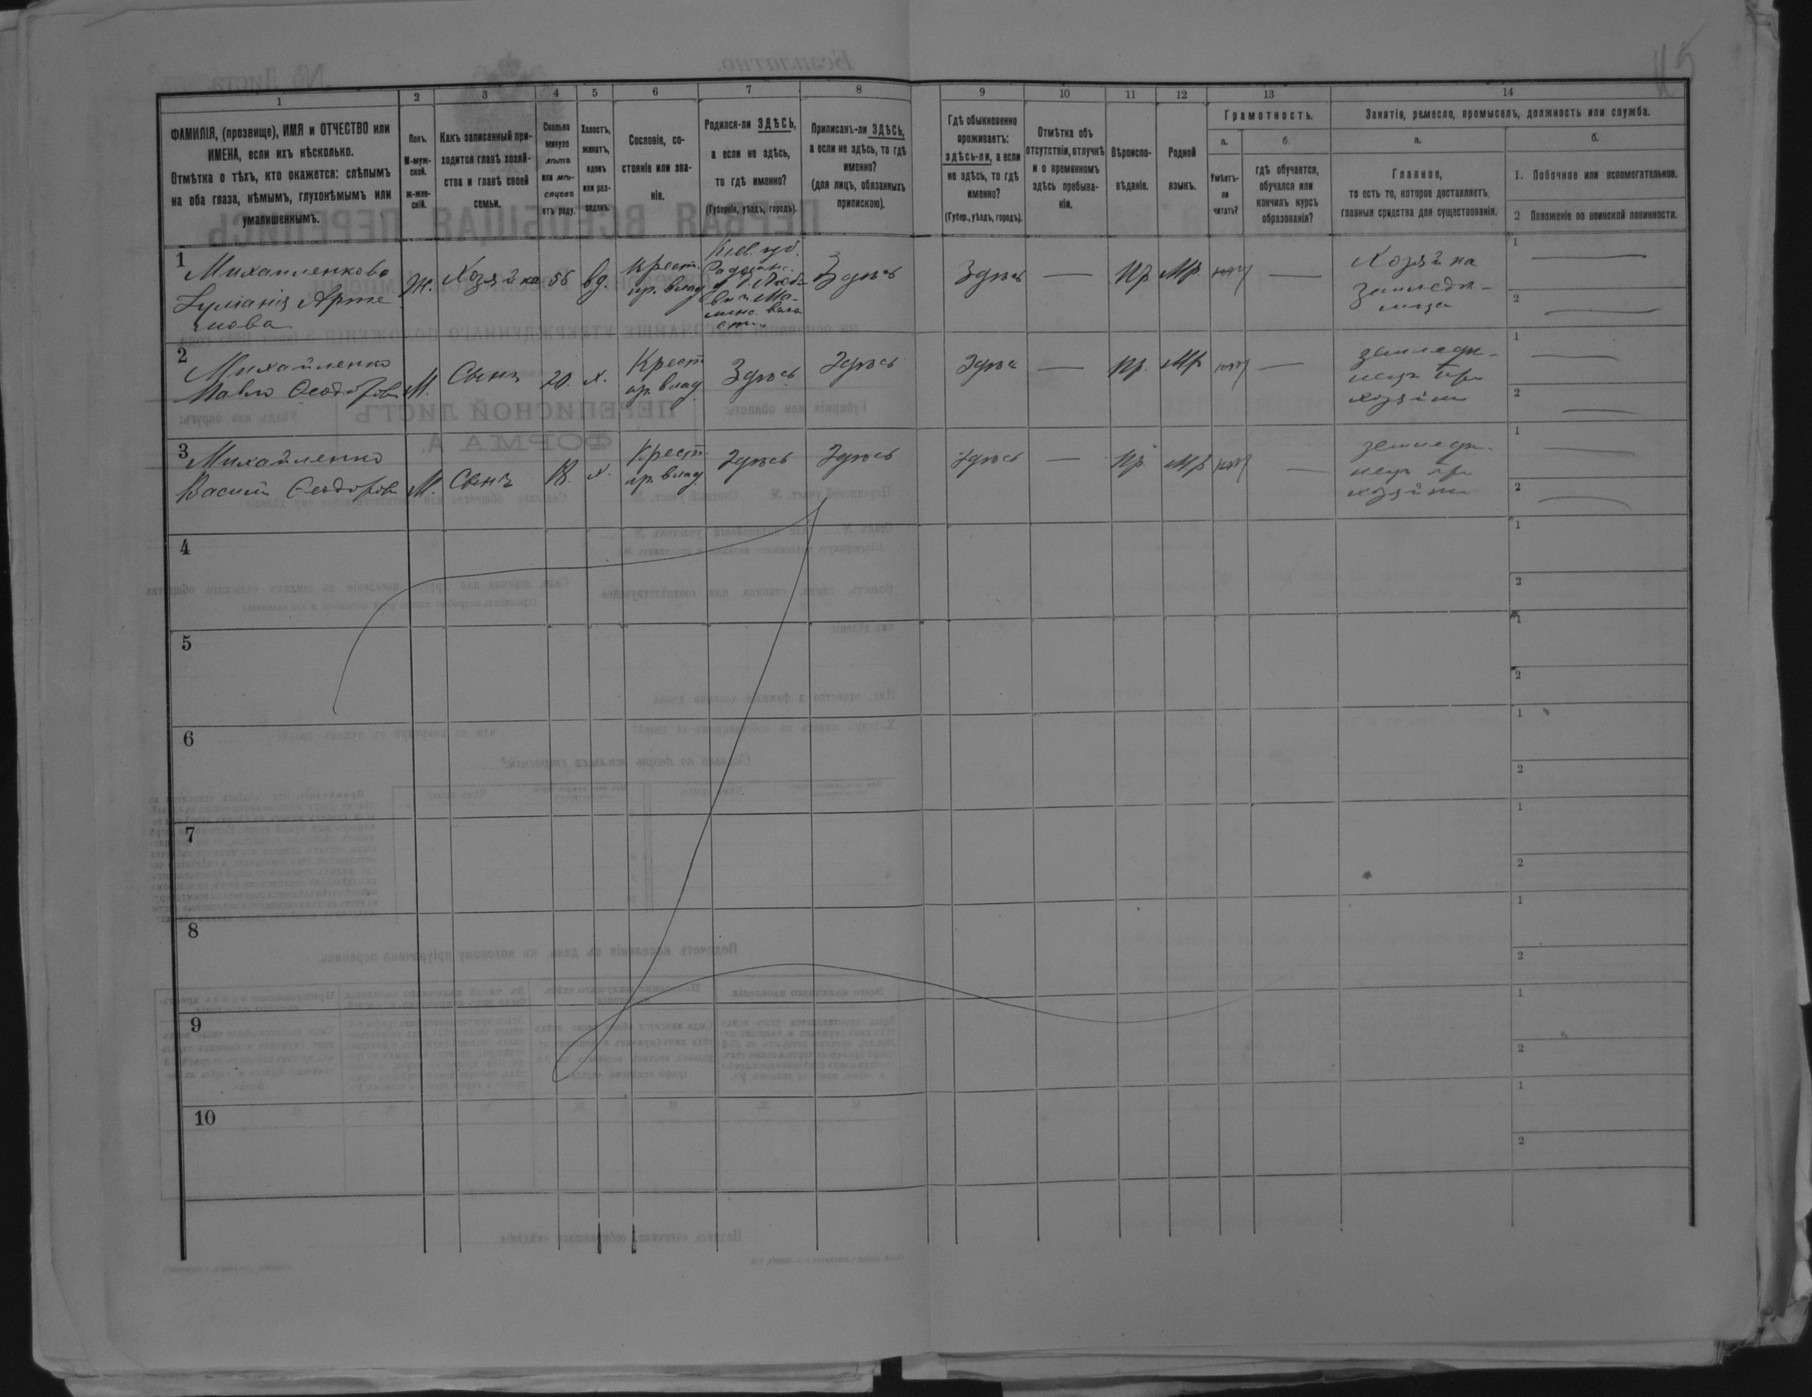 45
1
2
3
4
5
6
7
8
9
10
11
12
13
14
ФАМИЛІЯ, (прозвище), ИМЯ и ОТЧЕСТВО или
ИМЕНА, если ихъ нѣсколько.
Отмѣтка о тѣхъ, кто окажется: слѣпымъ
на оба глаза, нѣмымъ, глухонѣмымъ или
умалишеннымъ.
Полъ.
М-муж-
ской.
Ж-жен-
скій.
Какъ записанный при-
ходится главѣ хозяй-
ства и главѣ своей
семьи.
Сколько
минуло
лѣтъ
или мѣ-
сяцевъ
отъ роду.
Холостъ,
женатъ,
вдовъ
или раз-
веденъ.
Сословіе, со-
стояніе или зва-
ніе.
Родился-ли ЗДѢСЬ,
а если не здѣсь,
то гдѣ именно?
(Губернія, уѣздъ, городъ).
Приписанъ-ли ЗДѢСЬ,
а если не здѣсь, то гдѣ
именно?
(для лицъ, обязанныхъ
припискою).
Гдѣ обыкновенно
проживаетъ:
здѣсь-ли, а если
не здѣсь, то гдѣ
именно?
(Губер., уѣздъ, городъ).
Отмѣтка объ
отсутствіи, отлучкѣ
и о временномъ
здѣсь пребыва-
ніи.
Вѣроиспо-
вѣданіе.
Родной
языкъ.
Грамотность.
а.
Умѣетъ-
ли
читать?
б.
гдѣ обучается,
обучался или
кончилъ курсъ
образованія?
Занятія, ремесло, промыселъ, должность или служба.
а.
Главное,
то есть то, которое доставляетъ
главныя средства для существованія.
б.
1. Побочное или вспомогательное.
2 Положеніе по воинской повинности.
1
Михайленкова
Іуліанія Арте
мова
Ж.
Хозяйка
56
вд.
Крест.
пр. влад
Кіев. губ.
Здѣсь
Здѣсь
—
Пр.
Мр.
нѣтъ
—
Хозяйка
земледѣ-
лица
1 —
2 —
2
Михайленко
Павло Ѳеодоровъ
М.
Сынъ
20.
х.
Крест
пр. влад
Здѣсь
Здѣсь
Здѣсь
—
Пр.
Мр
нѣтъ
—
земледѣ-
лецъ при
хозяйкѣ
1 —
2 —
3
Михайленко
Василій Ѳеодоровъ
М.
Сынъ
18.
х.
Крест
пр. влад
Здѣсь
Здѣсь
Здѣсь
—
Пр.
Мр
нѣтъ
—
земледѣ-
лецъ при
хозяйкѣ
1 —
2 —
4
1
2
5
1
2
6
1
2
7
1
2
8
1
2
9
1
2
10
1
2